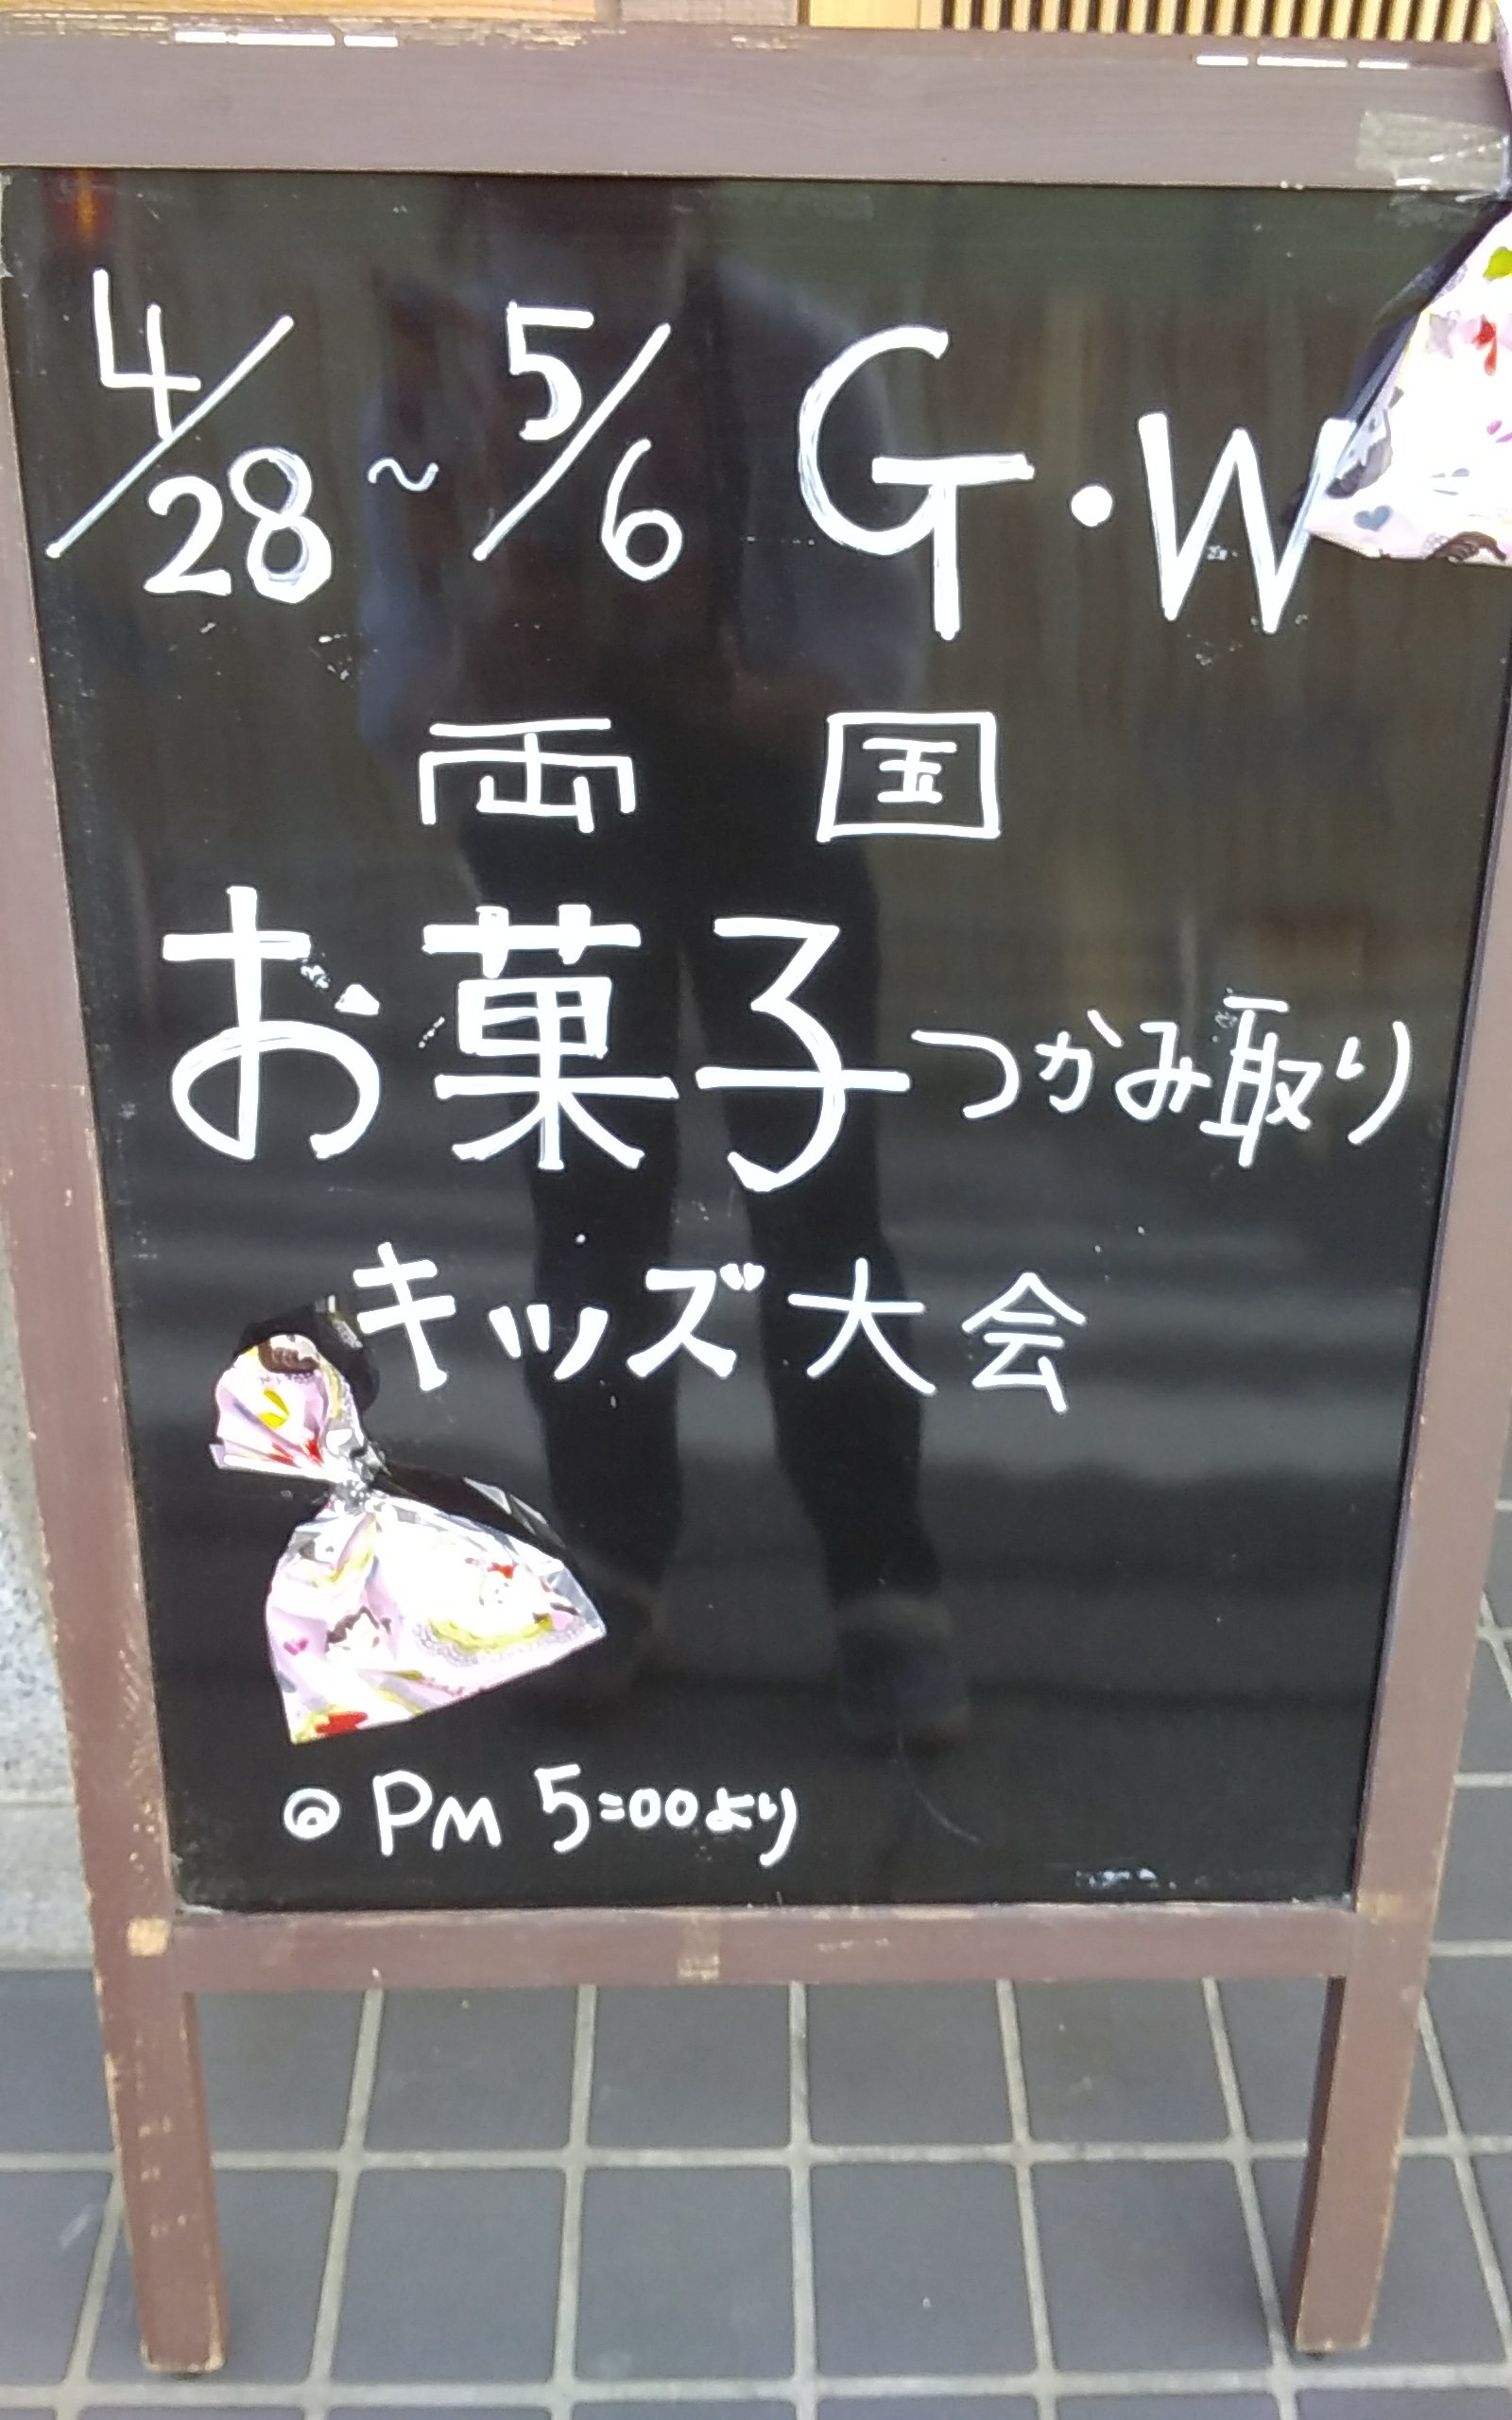 4/28~5/6 G・W
両国
お菓子つかみ取り
キッズ大会
◎PM 5:00より